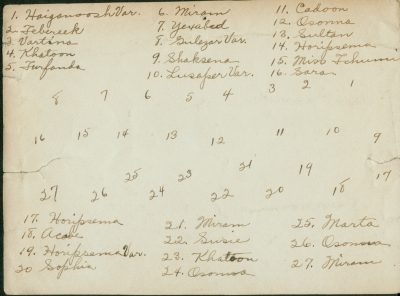 1. Haiganoosh Var.
2. Teberek
3 Vartina
4. Khatoon
5. Turfanda
6. Miram
7. Yexabed
8. Gulezar Var.
9. Shaksena
10. Lusaper Var.
11. Cadoon
12. Osonna
13. Sultan
14. Horipsema
15. Miss Tchumi
16. Sara
8 7 6 5 4 3 2 1
16 15 14 13 12 11 10 9
25 23 21 19 17
27 26 24 22 20 18
17. Horipsema
18. Acabe
19. Horipsema Var.
20 Sophia
21. Miram
22. Susie
23. Khatoon
24. Osonna
25. Marta
26. Osonna
27. Miram